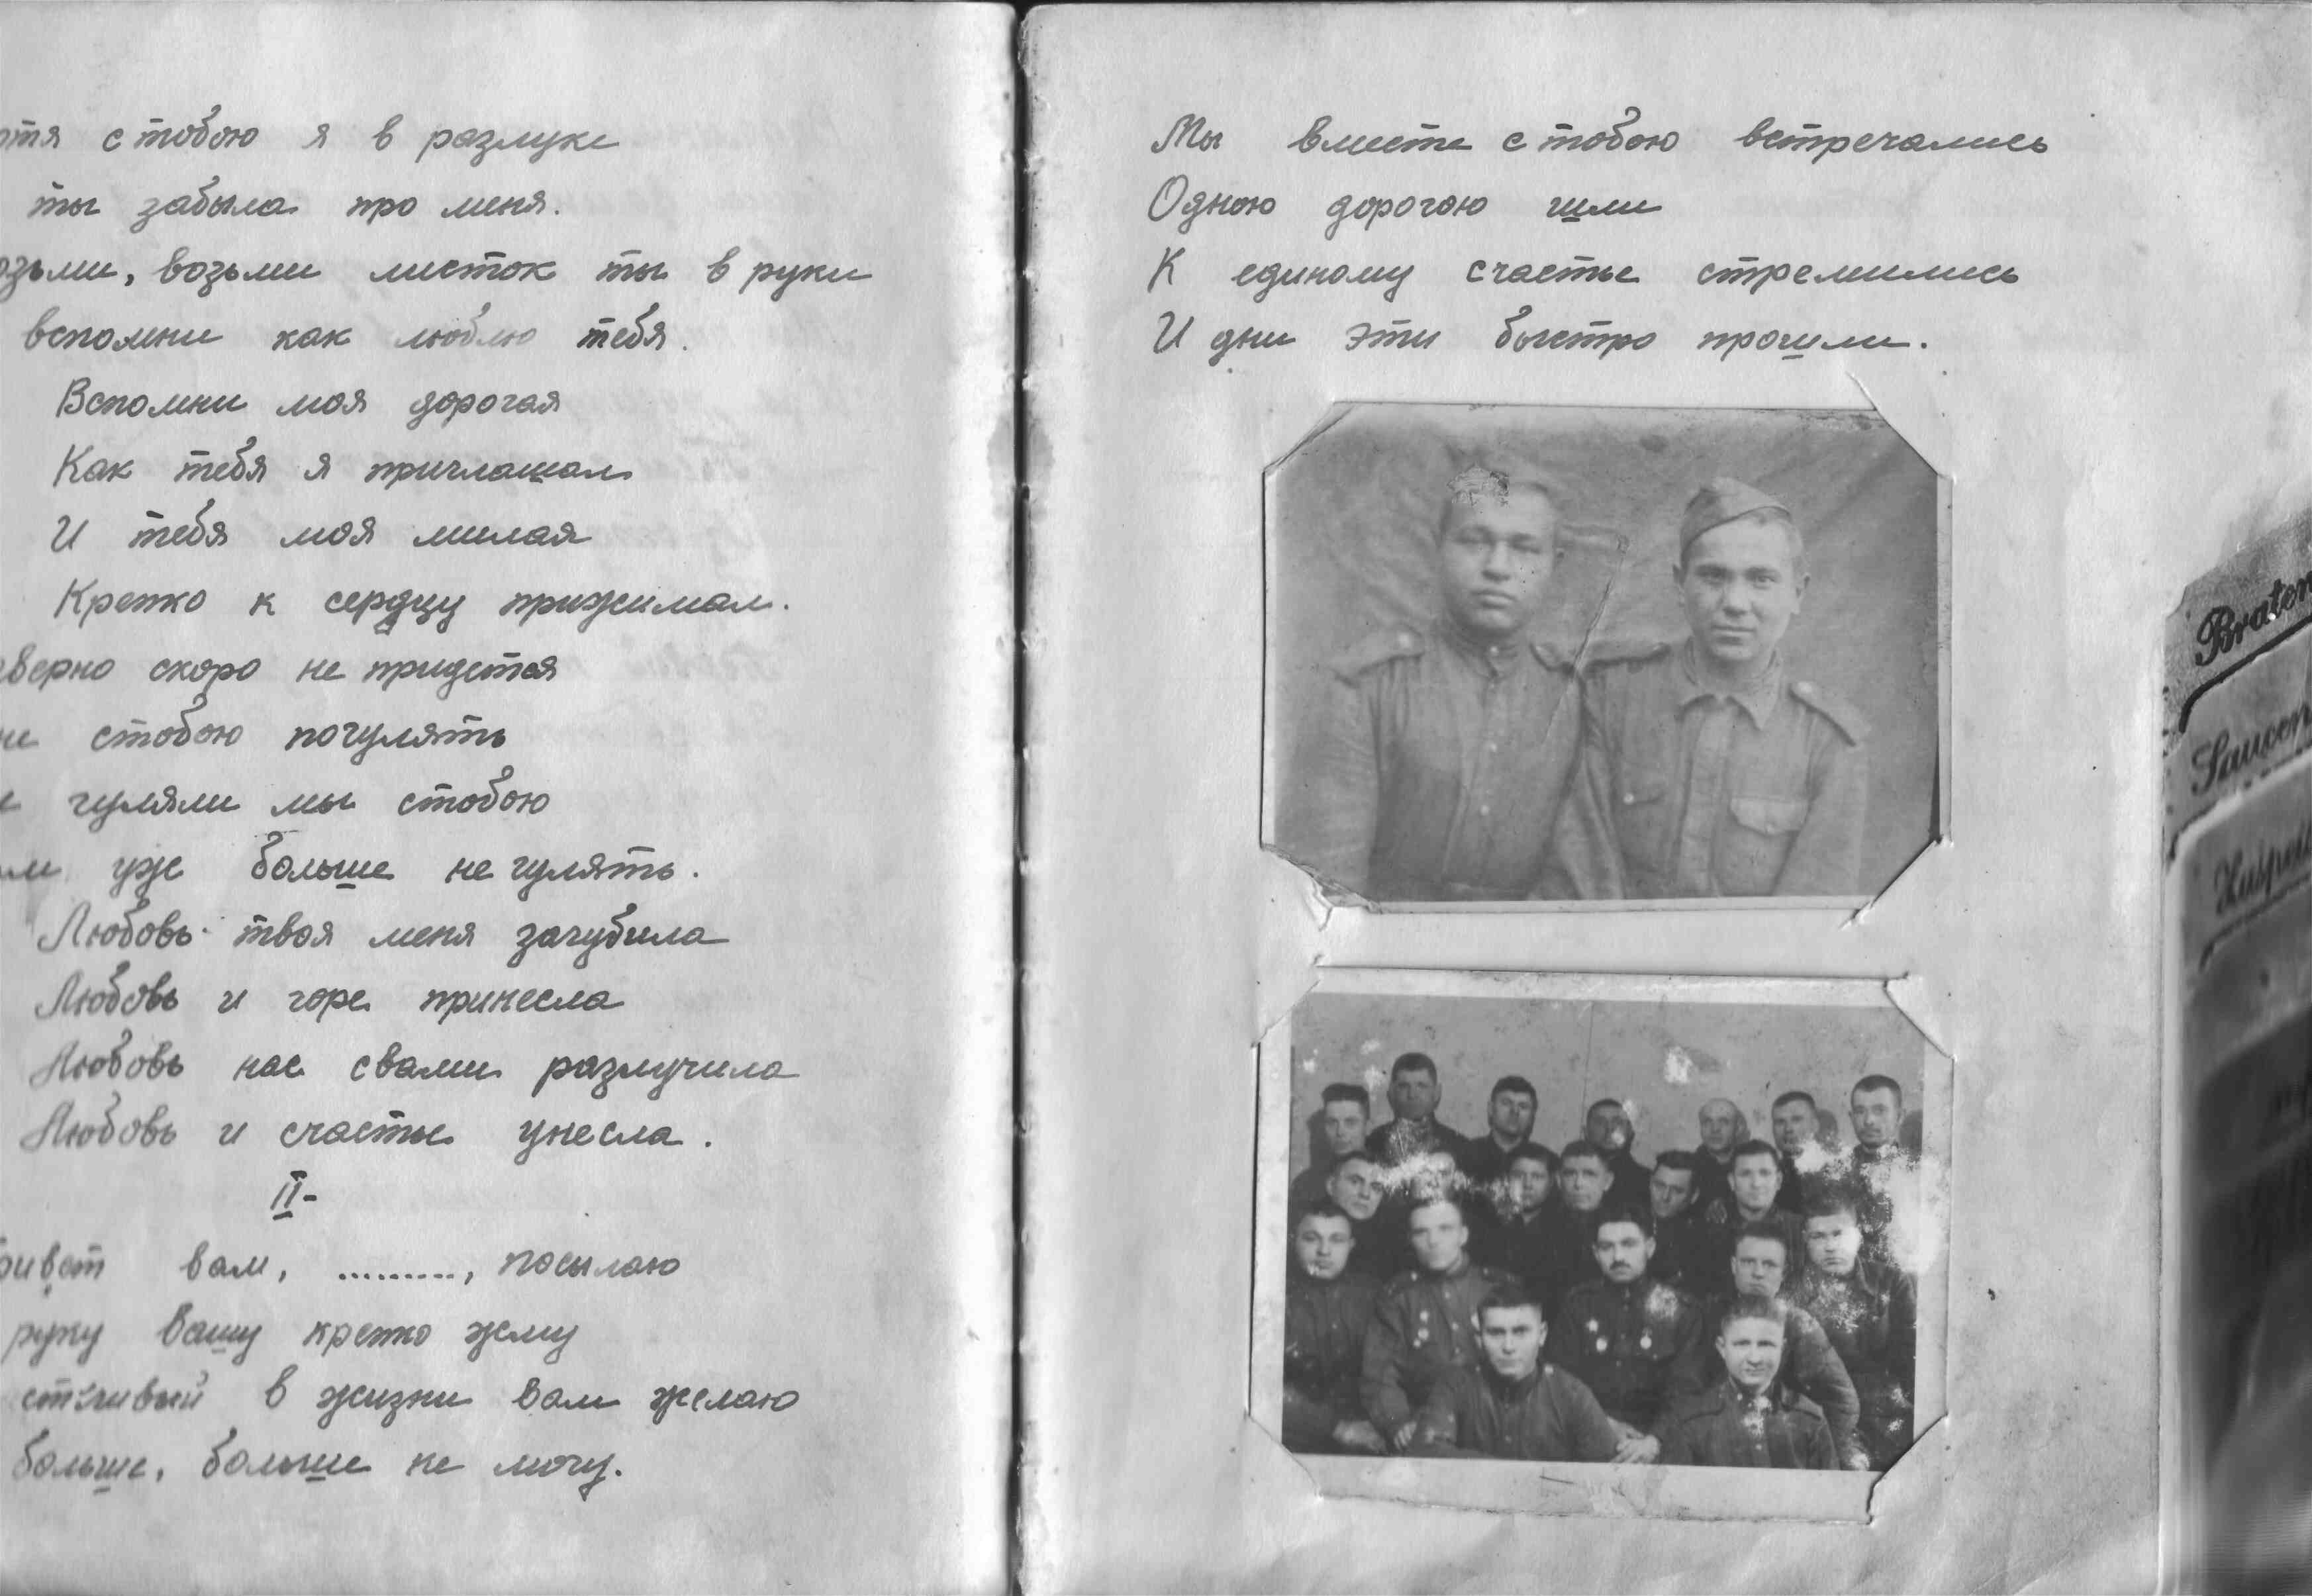 отя с тобою я в разлуке
ты забыла про меня.
озьми, возьми листок ты в руки
вспомни как люблю тебя.
Вспомни моя дорогая
Как тебя я приглашал
И тебя моя милая
Крепко к сердцу прижимал.
аверно скоро не придется
не стобою погулять
е гуляли мы стобою
ам уж больше не гулять.
Любовь твоя меня загубила
Любовь и горе принесла
Любовь нас свами разлучила
Любовь и счастье унесла.
II-
ривет вам, ........., посылаю
руку вашу крепко жму
стливый в жизни вам желаю
больше, больше не могу.
Мы вместе с тобою встречались
Одною дорогою шли
К единому счастье стремились
И дни эти быстро прошли.
Braten
Saucen